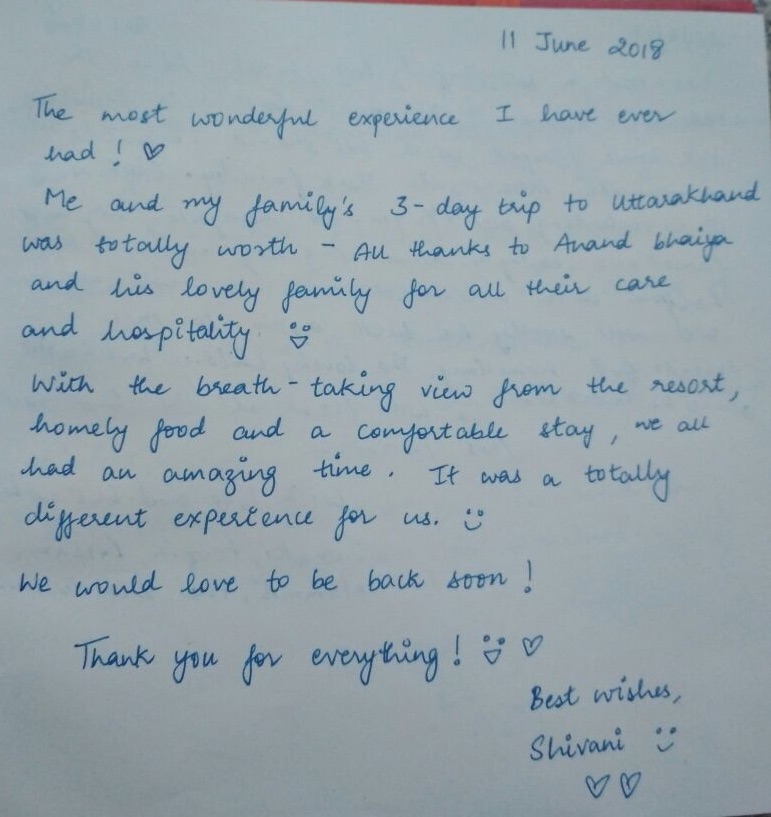 11 June 2018
The most wonderful experience I have ever
had ! ♡
Me and my family's 3-day trip to Uttarakhand
was totally worth - All thanks to Anand bhaiya
and his lovely family for all their care
and hospitality
With the breath-taking view from the resort,
homely food and a comfortable stay, we all
had an amazing time. It was a totally
different experience for us.
We would love to be back soon !
Thank you for everything ! ♡
Best wishes,
Shivani
♡ ♡